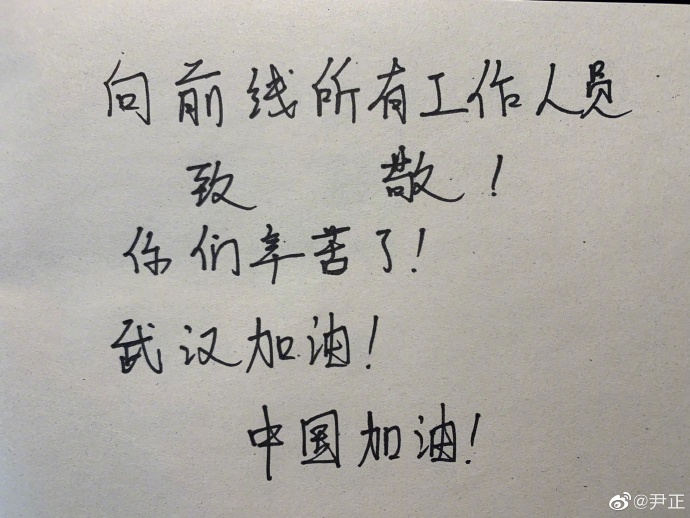 向前线所有工作人员
致 敬！
你们辛苦了！
武汉加油！
中国加油！
@尹正